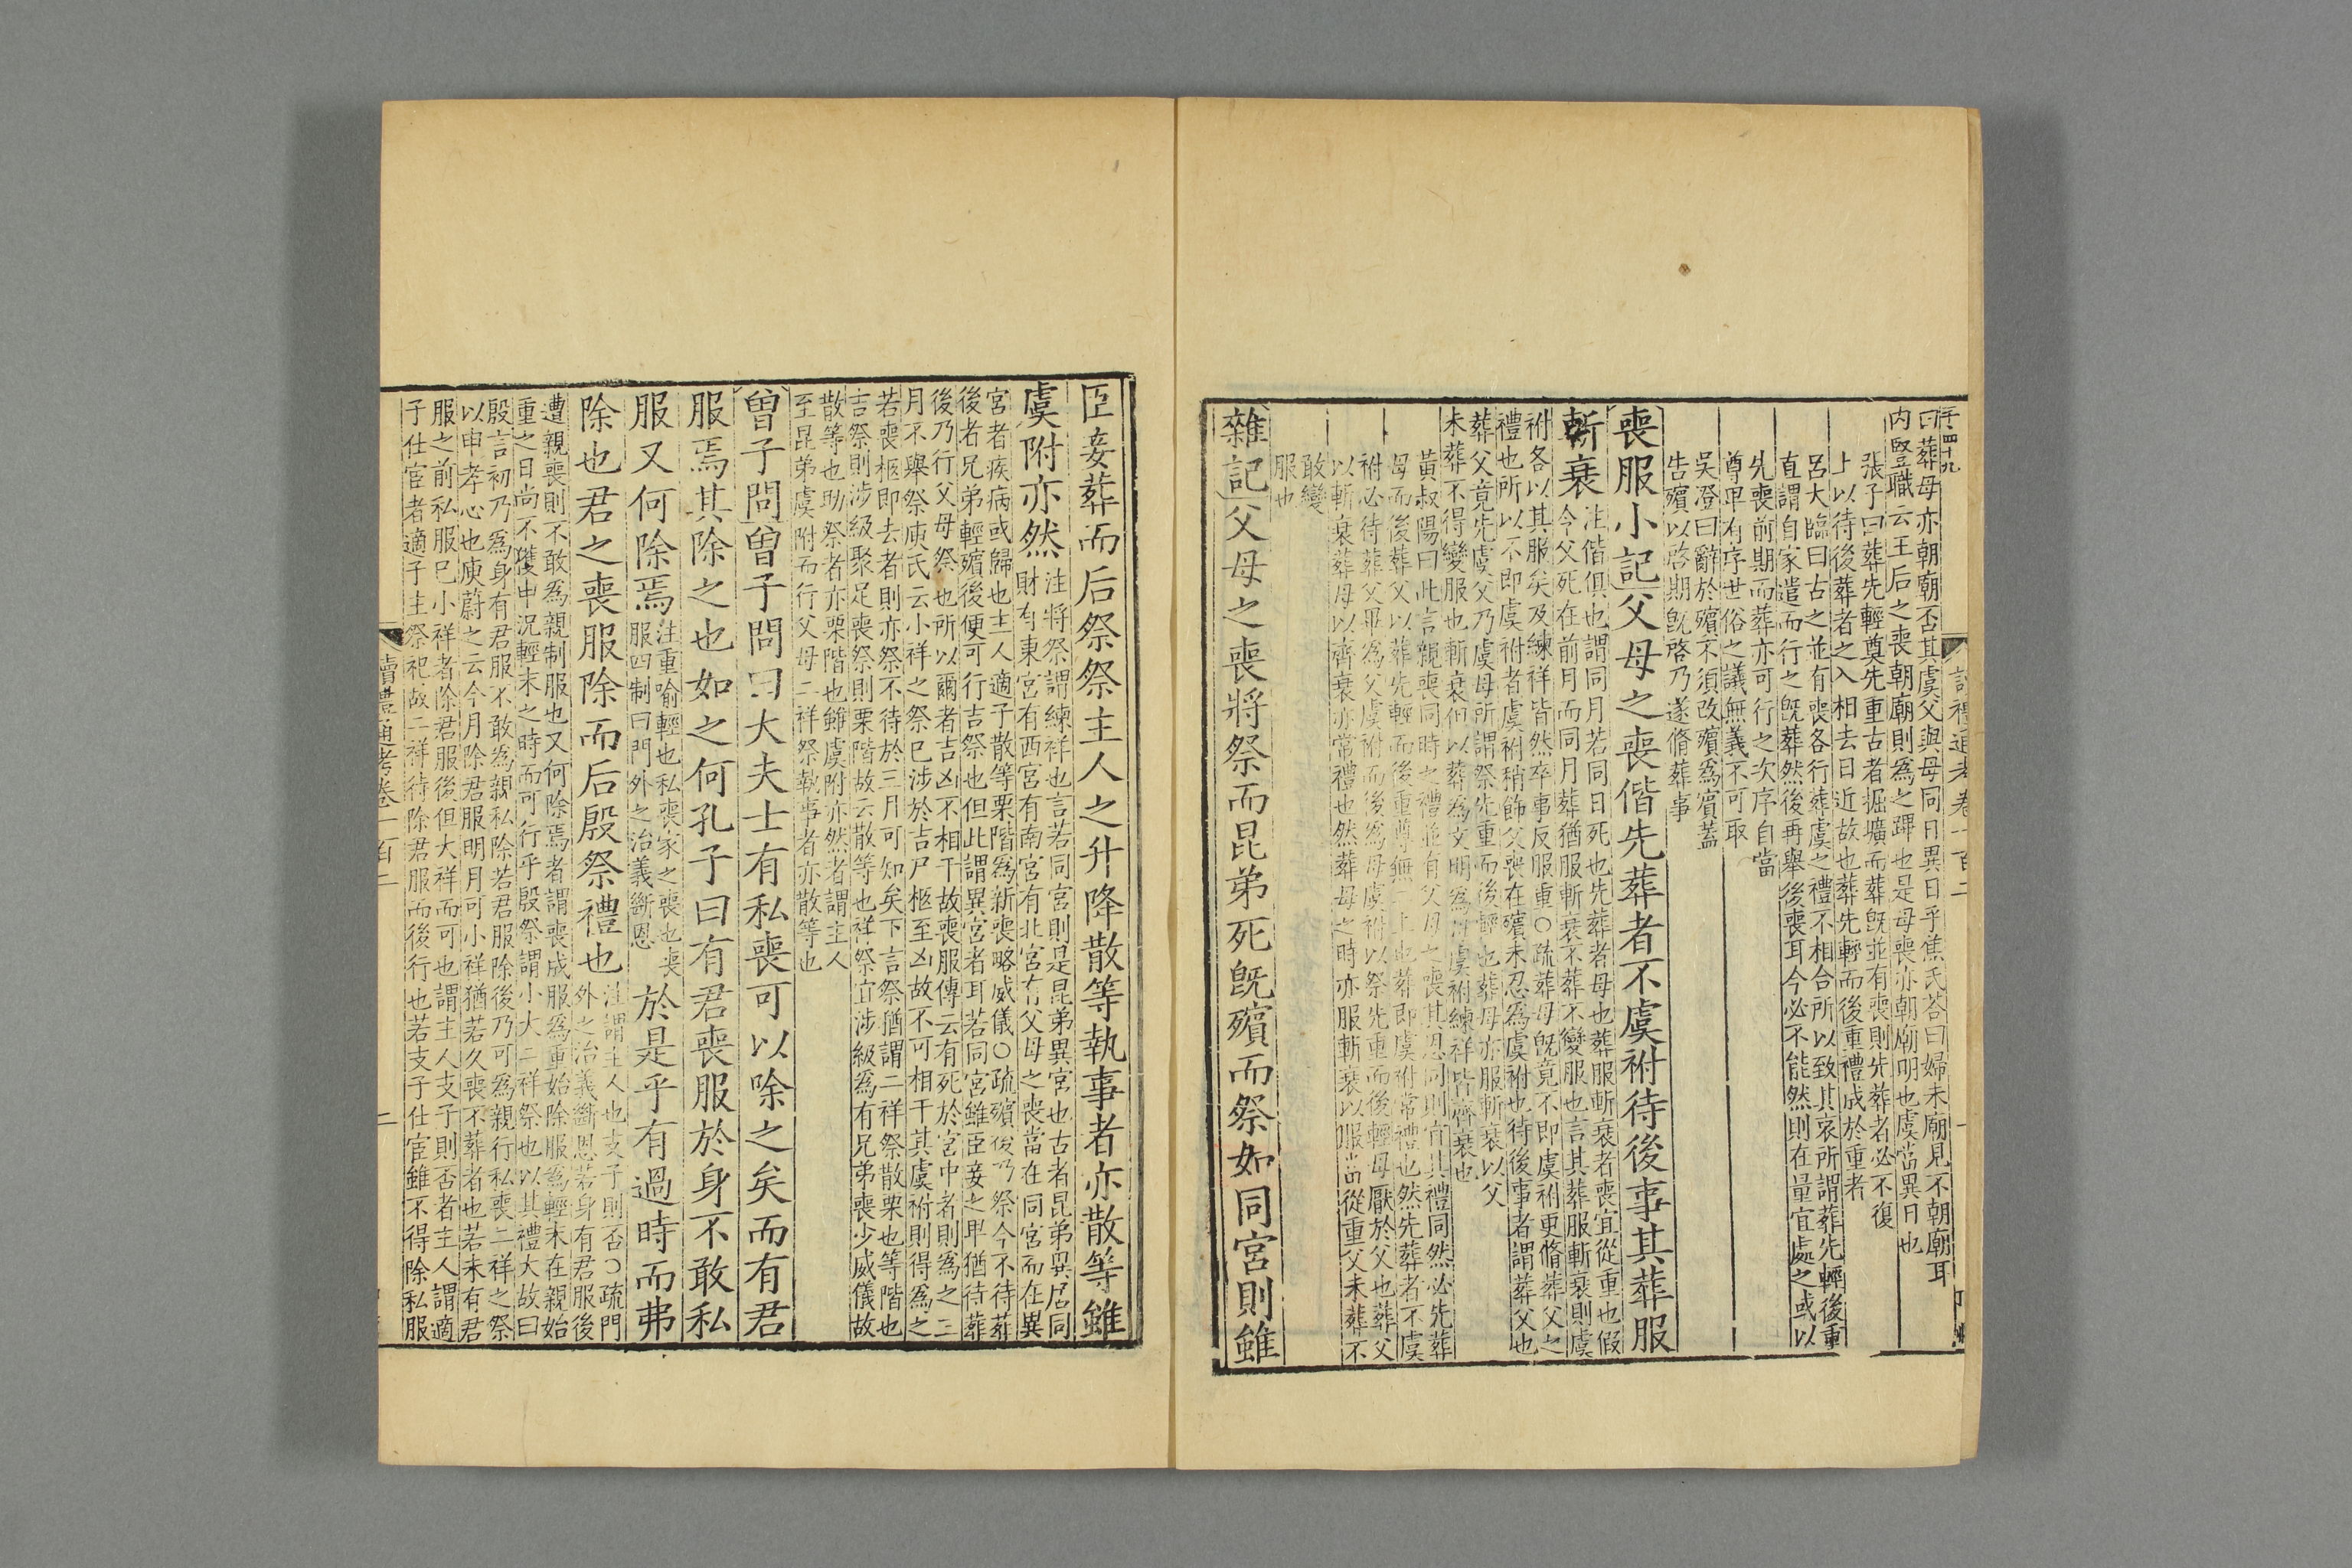 曰葬母亦朝朝否其虞父與母同日異日乎焦氏荅曰婦未廟見不朝廟耳
内豎職云王后之喪朝廟則爲之蹕也是母喪亦朝廟明也虞當異日也
張子曰葬先輕奠先重古者掘壙而葬旣並有喪則先葬者必不復
土以待後葬者之入相去日近故也葬先輕而後重禮成於重者
呂大臨曰古之並有喪各行葬虞之禮不相合所以致其哀所謂葬先輕後重
直謂自家遣而行之旣葬然後再舉後喪耳今必不能然則在量宜處之或以
先喪前期而葬亦可行之次序自當
尊卑有序世俗之議無義不可取
吳澄曰辭於殯不須改殯爲賓蓋
告殯以啓期旣啓乃遂脩葬事
喪服小記父母之喪偕先葬者不虞祔待後事其葬服
斬衰
注偕俱也謂同月若同日死也先葬者母也葬服斬衰者喪宜從重也假
今父死在前月而同月葬猶服斬衰不葬不變服也言其葬服斬衰則虞
祔各以其服矣及練祥皆然卒事反服重○疏葬母旣竟不即虞祔更脩葬父之
禮也所以不即虞祔者虞祔稍飾父喪在殯未忍爲虞祔也待後事者謂葬父也
葬父竟先虞父乃虞母所謂祭先重而後輕也葬母亦服斬衰以父
未葬不得變服也斬衰
黃叔陽曰此言親喪同時之禮並有父母之喪其恩同則宜其禮同然必先葬
母而後葬父以葬先輕而後重尊無二上也葬即虞祔常禮也然先葬者不虞
祔必待葬父畢爲父虞祔而後爲母虞祔以祭先重而後輕母厭於父也葬父
以斬衰葬母以齊衰亦常禮也然葬母之時亦服斬衰以服當從重父未葬不
敢變
服也
雜記父母之喪將祭而昆弟死旣殯而祭如同宮則雖
臣妾葬而后祭祭主人之升降散等執事者亦散等雖
虞附亦然
注將祭謂練祥也言若同宮則是昆弟異宮也古者昆弟異居同
財有東宮有西宮有南宮有北宮有父母之喪當在同宮而在異
宮者疾病或歸也主人適子散等栗階爲新喪略威儀○疏殯後乃祭今不待葬
後者兄弟輕殯後便可行吉祭也但此謂異宮者耳若同宮雖臣妾之卑猶待葬
後乃行父母祭也所以爾者吉凶不相干故喪服傳云有死於宮中者則爲之三
月不舉祭庾氏云小祥之祭已涉於吉尸柩至凶故不可相干其虞祔則得爲之
若喪柩即去者則亦祭不待於三月可知矣下言祭猶謂二祥祭散栗也等階也
言祭則涉級聚足喪祭則栗階故云散等也祥祭宜涉級爲有兄弟喪少威儀故
散等也助祭者亦栗階也雖虞附亦然者謂主人
至昆弟虞附而行父母二祥祭執事者亦散等也
曾子問曾子問曰大夫士有私喪可以除之矣而有君
服焉其除之也如之何孔子曰有君喪服於身不敢私
服又何除焉
注重喻輕也私喪家之喪也喪
服四制曰門外之治義斷恩
於是乎有過時而弗
除也君之喪服除而后殷祭禮也
注謂主人也支子則否○疏門
外之治義斷恩若身有君服後
遭親喪則不敢爲親制服也又何除焉者謂喪成服爲重始除服爲輕末在親始
重之日尚不獲申況輕末之時而可行乎殷祭謂小大二祥祭也以其禮大故曰
殷言初乃爲身有君服不敢爲親私除若君服除後乃可爲親行私喪二祥之祭
以申孝心也庾蔚之云今月除君服明月可小祥猶若久喪不葬者也若未有君
服之前私服已小祥者除君服後但大祥而可也謂主人支子則否者主人謂適
子仕宦者適子主祭祀故二祥待除君服而後行也若支子仕宦雖不得除私服
讀禮通考卷一百二
二